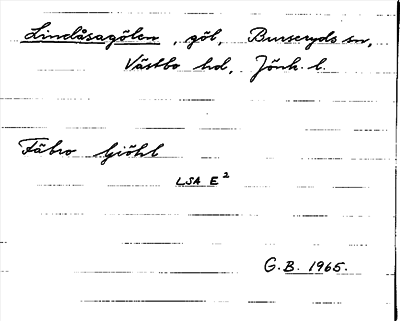 Lindåsagölen, göl, Burseryds sn,
Västbo hd, Jönk. l.
Fäbro
LSA E²
G.B. 1965.